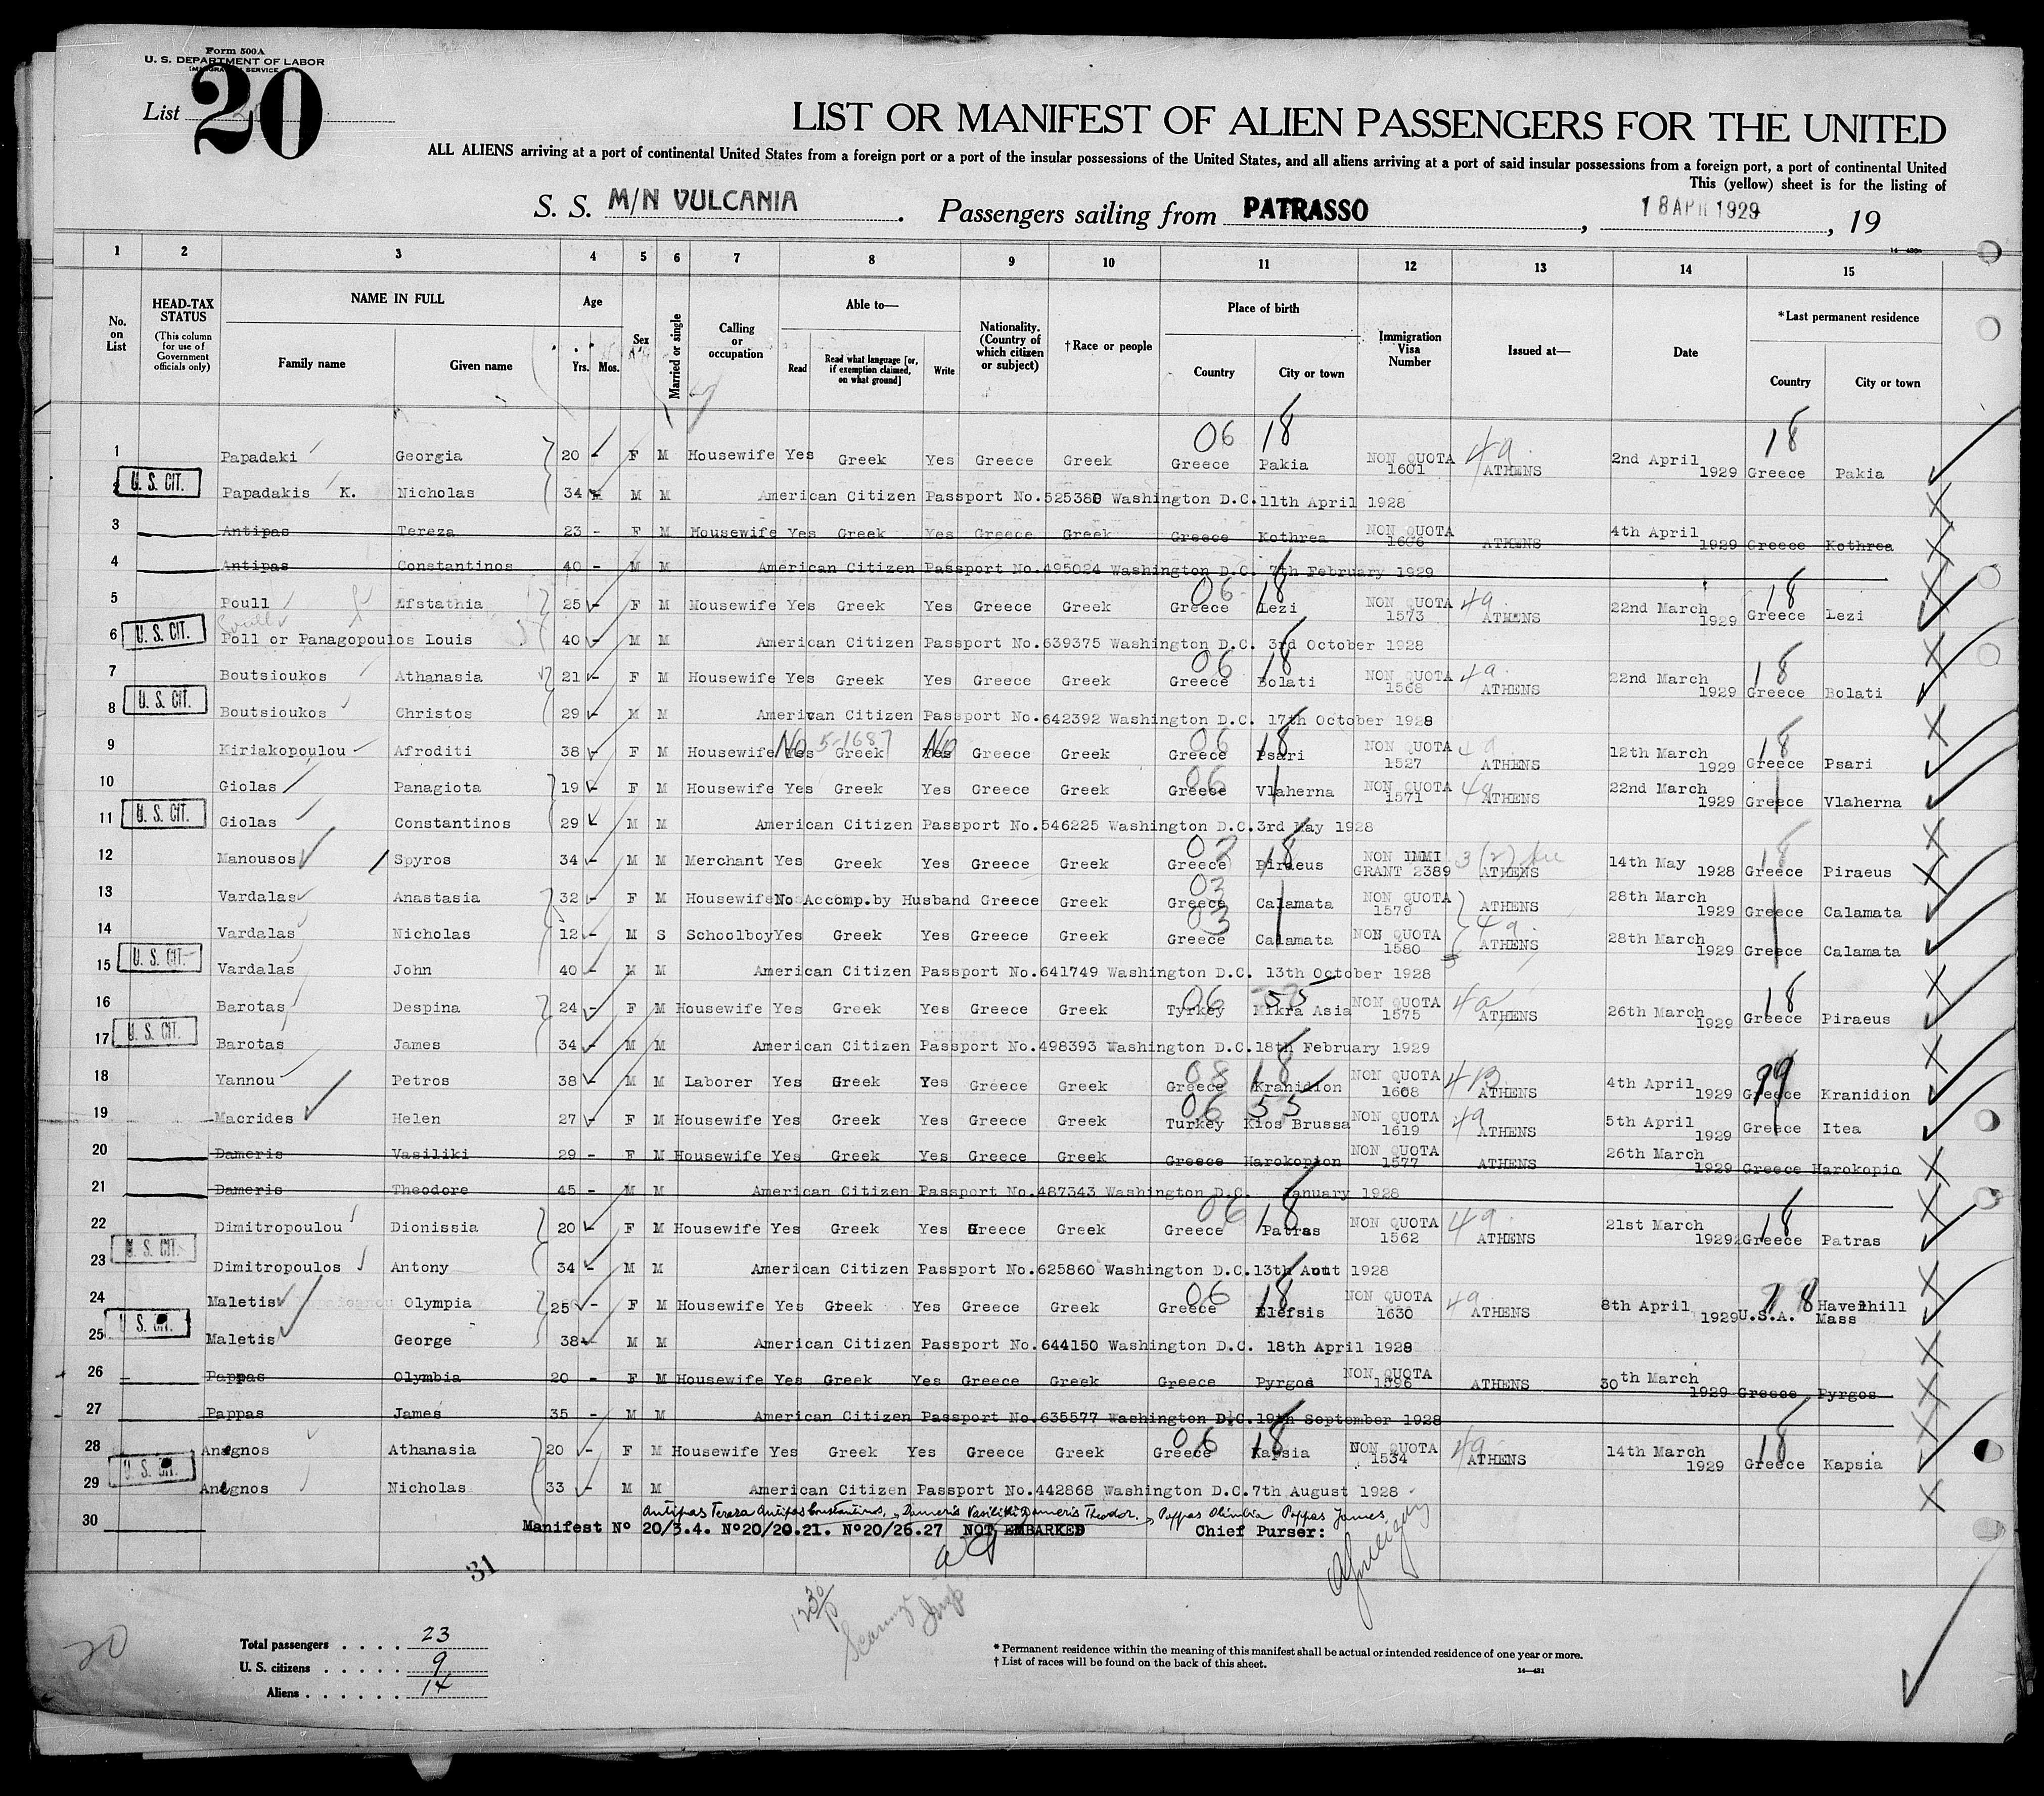 Form 500A
U. S. DEPARTMENT OF LABOR
IMMIGRATION SERVICE
List 20
LIST OR MANIFEST OF ALIEN PASSENGERS FOR THE UNITED
ALL ALIENS arriving at a port of continental United States from a foreign port or a port of the insular possessions of the United States, and all aliens arriving at a port of said insular possessions from a foreign port, a port of continental United
This (yellow) sheet is for the listing of
S. S. M/N VULCANIA. Passengers sailing from PATRASSO, 18 APR 1929, 19
14—430a
1 2 3 4 5 6 7 8 9 10 11 12 13 14 15
No. on List
HEAD-TAX STATUS (This column for use of Government officials only)
NAME IN FULL Family name Given name
Age Yrs. Mos.
Sex
Married or single
Calling or occupation
Able to— Read Read what language [or, if exemption claimed, on what ground] Write
Nationality. (Country of which citizen or subject)
†Race or people
Place of birth Country City or town
Immigration Visa Number
Issued at—
Date
*Last permanent residence Country City or town
1 Papadaki Georgia 20 - F M Housewife Yes Greek Yes Greece Greek 06 Greece 18 Pakia NON QUOTA 1601 4a ATHENS 2nd April 1929 18 Greece Pakia
2 U. S. CIT. Papadakis K. Nicholas 34 M M American Citizen Passport No.525380 Washington D.C.11th April 1928
3 Antipas Tereza 23 - F M Housewife Yes Greek Yes Greece Greek Greece Kothrea NON QUOTA 1606 ATHENS 4th April 1929 Greece Kothrea
4 Antipas Constantinos 40 - M M American Citizen Passport No.495024 Washington D.C. 7th February 1929
5 Poull Efstathia 25 - F M Housewife Yes Greek Yes Greece Greek 06 Greece 18 Lezi NON QUOTA 1573 4a ATHENS 22nd March 1929 18 Greece Lezi
6 U. S. CIT. Poll or Panagopoulos Louis 40 - M M American Citizen Passport No.639375 Washington D.C. 3rd October 1928
7 Boutsioukos Athanasia 21 - F M Housewife Yes Greek Yes Greece Greek 06 Greece 18 Bolati NON QUOTA 1568 4a ATHENS 22nd March 1929 18 Greece Bolati
8 U. S. CIT. Boutsioukos Christos 29 - M M American Citizen Passport No.642392 Washington D.C. 17th October 1928
9 Kiriakopoulou Afroditi 38 - F M Housewife No Yes 5-1687 Greek No Yes Greece Greek 06 Greece 18 Psari NON QUOTA 1527 4a ATHENS 12th March 1929 18 Greece Psari
10 Giolas Panagiota 19 - F M Housewife Yes Greek Yes Greece Greek 06 Greece Vlaherna NON QUOTA 1571 4a ATHENS 22nd March 1929 Greece Vlaherna
11 U. S. CIT. Giolas Constantinos 29 - M M American Citizen Passport No.546225 Washington D.C.3rd May 1928
12 Manousos Spyros 34 - M M Merchant Yes Greek Yes Greece Greek Greece 18 Piraeus NON IMMI GRANT 2389 3 (2) ATHENS 14th May 1928 18 Greece Piraeus
13 Vardalas Anastasia 32 - F M Housewife No Accomp.by Husband Greece Greek 03 Greece Calamata NON QUOTA 1579 ATHENS 28th March 1929 Greece Calamata
14 Vardalas Nicholas 12 - M S Schoolboy Yes Greek Yes Greece Greek 03 Greece Calamata NON QUOTA 1580 4a ATHENS 28th March 1929 Greece Calamata
15 U. S. CIT. Vardalas John 40 - M M American Citizen Passport No.641749 Washington D.C. 13th October 1928
16 Barotas Despina 24 - F M Housewife Yes Greek Yes Greece Greek 06 Tyrkey 55 Mikra Asia NON QUOTA 1575 4a ATHENS 26th March 1929 18 Greece Piraeus
17 U. S. CIT. Barotas James 34 - M M American Citizen Passport No.498393 Washington D.C.18th February 1929
18 Yannou Petros 38 - M M Laborer Yes Greek Yes Greece Greek 08 Greece 18 Kranidion NON QUOTA 1608 4B ATHENS 4th April 1929 99 Greece Kranidion
19 Macrides Helen 27 - F M Housewife Yes Greek Yes Greece Greek 06 Turkey 55 Kios Brussa NON QUOTA 1619 4a ATHENS 5th April 1929 Greece Itea
20 Dameris Vasiliki 29 - F M Housewife Yes Greek Yes Greece Greek Greece Harokopion NON QUOTA 1577 ATHENS 26th March 1929 Greece Harokopio
21 Dameris Theodore 45 - M M American Citizen Passport No.487343 Washington D.C. January 1928
22 Dimitropoulou Dionissia 20 - F M Housewife Yes Greek Yes Greece Greek 06 Greece 18 Patras NON QUOTA 1562 4a ATHENS 21st March 1929 18 Greece Patras
23 U. S. CIT. Dimitropoulos Antony 34 - M M American Citizen Passport No.625860 Washington D.C.13th Aout 1928
24 Maletis Olympia 25 - F M Housewife Yes Greek Yes Greece Greek 06 Greece 18 Elefsis NON QUOTA 1630 4a ATHENS 8th April 1929 U.S.A. Haverhill Mass
25 U. S. CIT. Maletis George 38 M M American Citizen Passport No.644150 Washington D.C. 18th April 1928
26 Pappas Olymbia 20 - F M Housewife Yes Greek Yes Greece Greek Greece Pyrgos NON QUOTA 1596 ATHENS 30th March 1929 Greece Pyrgos
27 Pappas James 35 - M M American Citizen Passport No.635577 Washington D.C.19th September 1928
28 Anegnos Athanasia 20 - F M Housewife Yes Greek Yes Greece Greek 06 Greece 18 Kapsia NON QUOTA 1534 4a ATHENS 14th March 1929 18 Greece Kapsia
29 U. S. CIT. Anegnos Nicholas 33 - M M American Citizen Passport No.442868 Washington D.C.7th August 1928
Antipas Tereza Antipas Constantinos, Dameris Vasiliki Dameris Theodor, Pappas Olimbia Pappas James
30 Manifest No 20/3.4. No20/20.21. No20/26.27 NOT EMBARKED Chief Purser:
31
20
Total passengers . . . . 23
U. S. citizens . . . . . 9
Aliens . . . . . . 14
* Permanent residence within the meaning of this manifest shall be actual or intended residence of one year or more.
† List of races will be found on the back of this sheet.
14—431